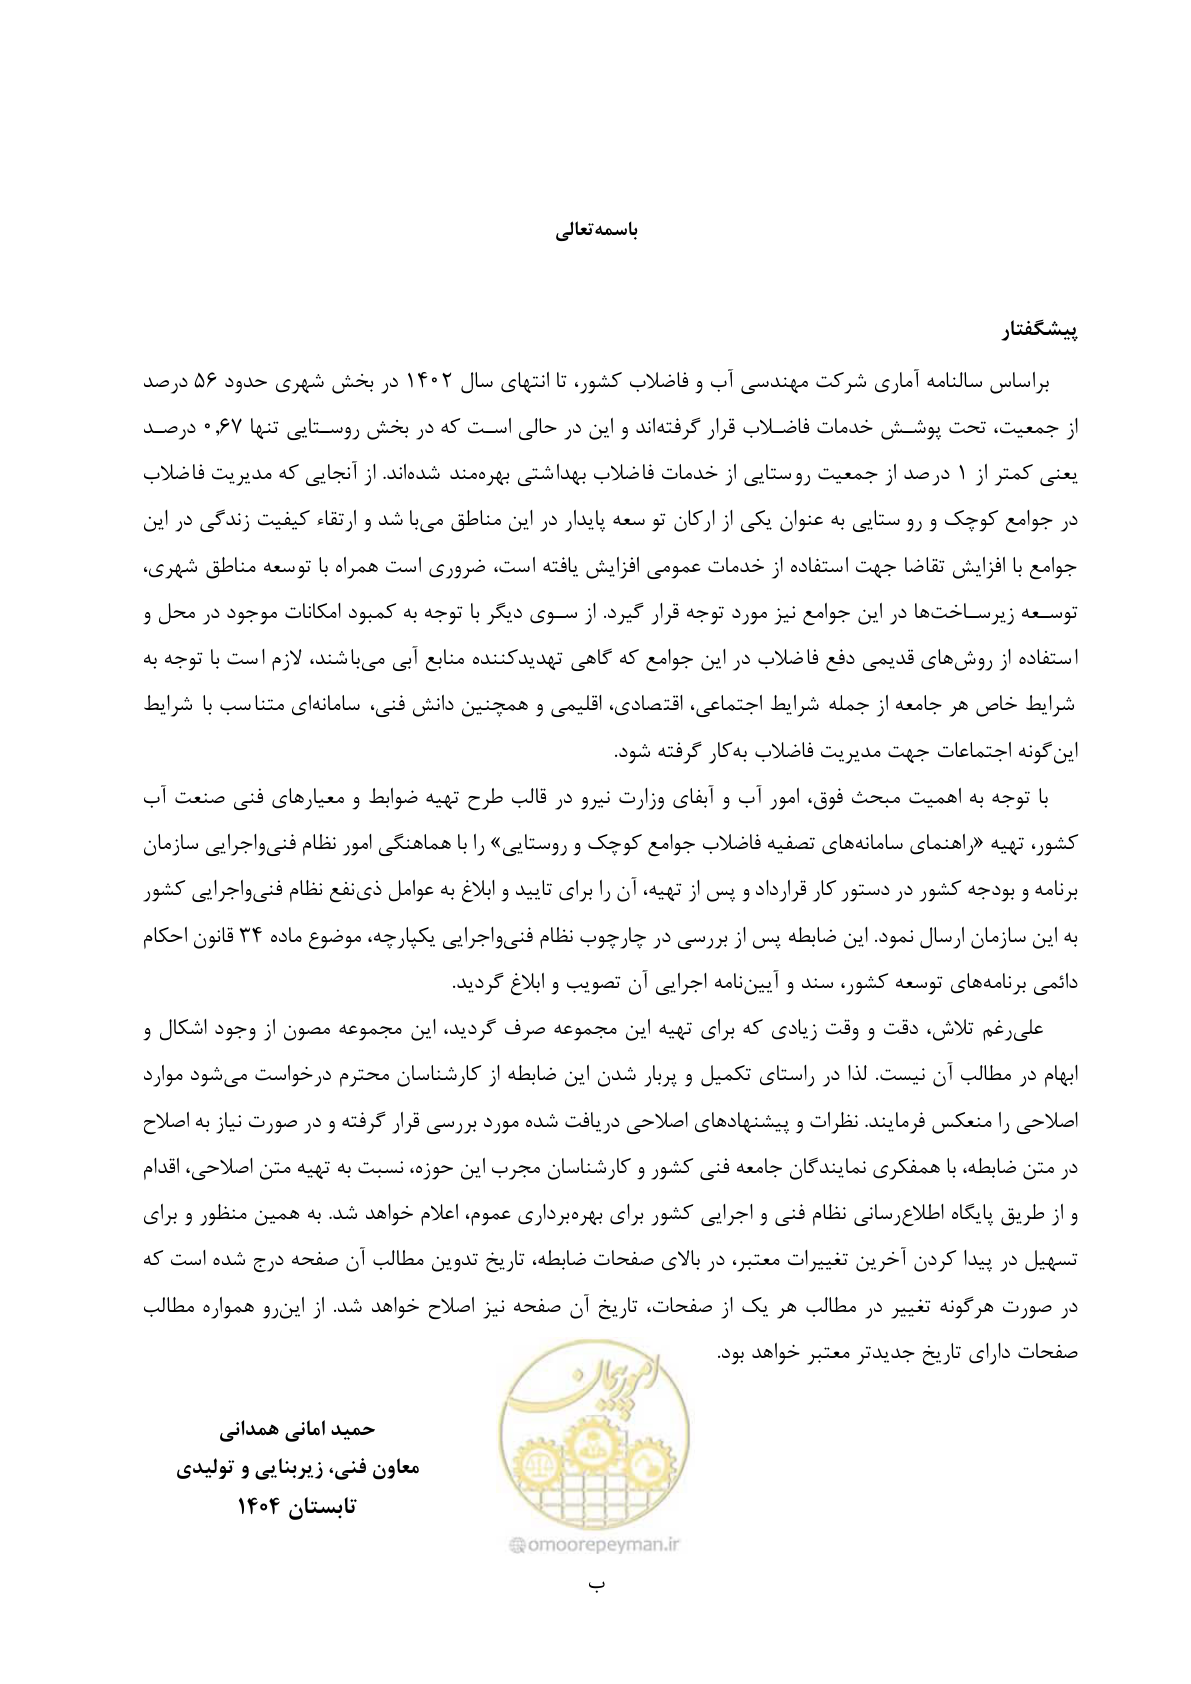 باسمه‌تعالی
پیشگفتار
براساس سالنامه آماری شرکت مهندسی آب و فاضلاب کشور، تا انتهای سال ۱۴۰۲ در بخش شهری حدود ۵۶ درصد
از جمعیت، تحت پوشش خدمات فاضلاب قرار گرفته‌اند و این در حالی است که در بخش روستایی تنها ۰٫۶۷ درصد
یعنی کمتر از ۱ درصد از جمعیت روستایی از خدمات فاضلاب بهداشتی بهره‌مند شده‌اند. از آنجایی که مدیریت فاضلاب
در جوامع کوچک و روستایی به عنوان یکی از ارکان توسعه پایدار در این مناطق می‌باشد و ارتقاء کیفیت زندگی در این
جوامع با افزایش تقاضا جهت استفاده از خدمات عمومی افزایش یافته است، ضروری است همراه با توسعه مناطق شهری،
توسعه زیرساخت‌ها در این جوامع نیز مورد توجه قرار گیرد. از سوی دیگر با توجه به کمبود امکانات موجود در محل و
استفاده از روش‌های قدیمی دفع فاضلاب در این جوامع که گاهی تهدیدکننده منابع آبی می‌باشند، لازم است با توجه به
شرایط خاص هر جامعه از جمله شرایط اجتماعی، اقتصادی، اقلیمی و همچنین دانش فنی، سامانه‌ای متناسب با شرایط
این‌گونه اجتماعات جهت مدیریت فاضلاب به‌کار گرفته شود.
با توجه به اهمیت مبحث فوق، امور آب و آبفای وزارت نیرو در قالب طرح تهیه ضوابط و معیارهای فنی صنعت آب
کشور، تهیه «راهنمای سامانه‌های تصفیه فاضلاب جوامع کوچک و روستایی» را با هماهنگی امور نظام فنی‌واجرایی سازمان
برنامه و بودجه کشور در دستور کار قرارداد و پس از تهیه، آن را برای تایید و ابلاغ به عوامل ذی‌نفع نظام فنی‌واجرایی کشور
به این سازمان ارسال نمود. این ضابطه پس از بررسی در چارچوب نظام فنی‌واجرایی یکپارچه، موضوع ماده ۳۴ قانون احکام
دائمی برنامه‌های توسعه کشور، سند و آیین‌نامه اجرایی آن تصویب و ابلاغ گردید.
علی‌رغم تلاش، دقت و وقت زیادی که برای تهیه این مجموعه صرف گردید، این مجموعه مصون از وجود اشکال و
ابهام در مطالب آن نیست. لذا در راستای تکمیل و پربار شدن این ضابطه از کارشناسان محترم درخواست می‌شود موارد
اصلاحی را منعکس فرمایند. نظرات و پیشنهادهای اصلاحی دریافت شده مورد بررسی قرار گرفته و در صورت نیاز به اصلاح
در متن ضابطه، با همفکری نمایندگان جامعه فنی کشور و کارشناسان مجرب این حوزه، نسبت به تهیه متن اصلاحی، اقدام
و از طریق پایگاه اطلاع‌رسانی نظام فنی و اجرایی کشور برای بهره‌برداری عموم، اعلام خواهد شد. به همین منظور و برای
تسهیل در پیدا کردن آخرین تغییرات معتبر، در بالای صفحات ضابطه، تاریخ تدوین مطالب آن صفحه درج شده است که
در صورت هرگونه تغییر در مطالب هر یک از صفحات، تاریخ آن صفحه نیز اصلاح خواهد شد. از این‌رو همواره مطالب
صفحات دارای تاریخ جدیدتر معتبر خواهد بود.
امور پیمان
حمید امانی همدانی
معاون فنی، زیربنایی و تولیدی
تابستان ۱۴۰۴
omoorepeyman.ir
ب